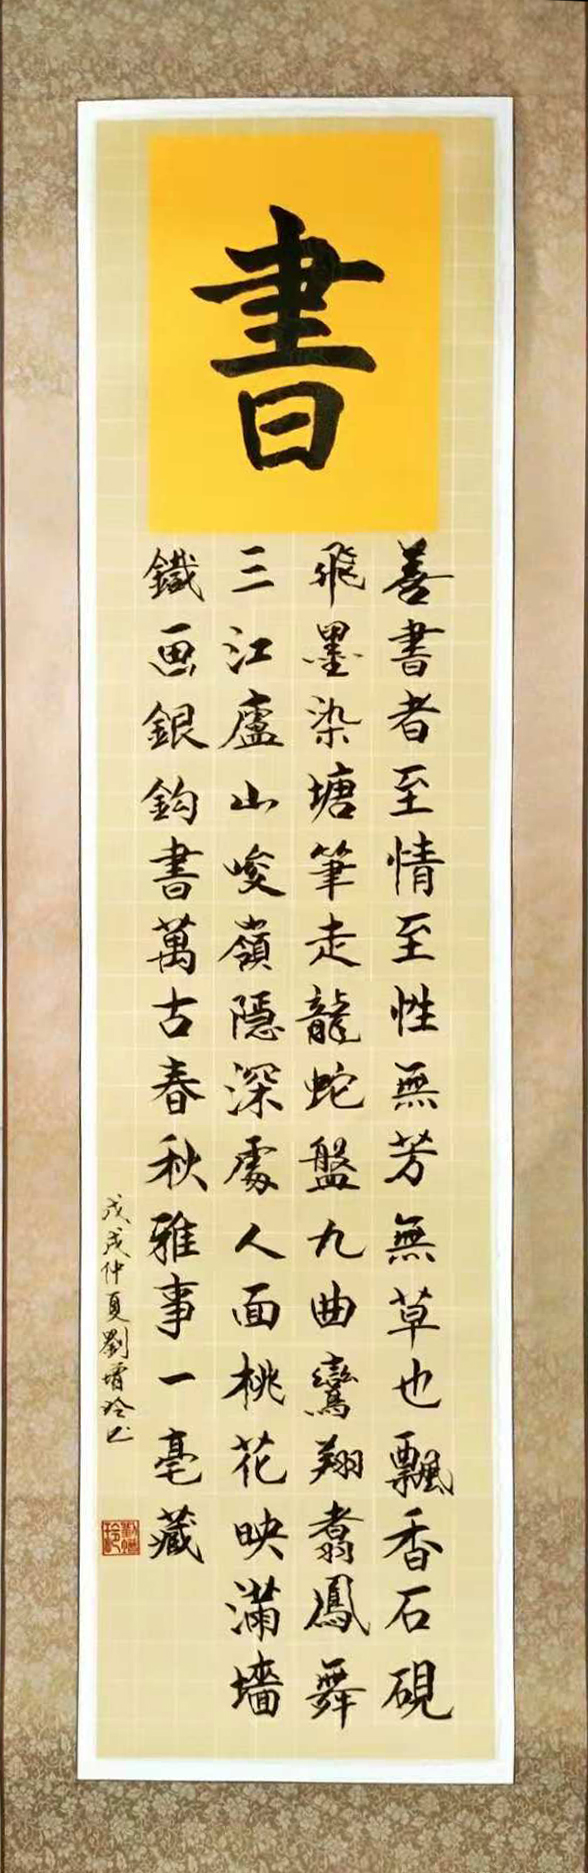 書
善書者至情至性無芳無草也飄香石硯
飛墨染塘筆走龍蛇盤九曲鸞翔翥鳳舞
三江廬山峻嶺隱深處人面桃花映滿墻
鐵画銀鈎書萬古春秋雅事一毫藏
戊戌仲夏劉